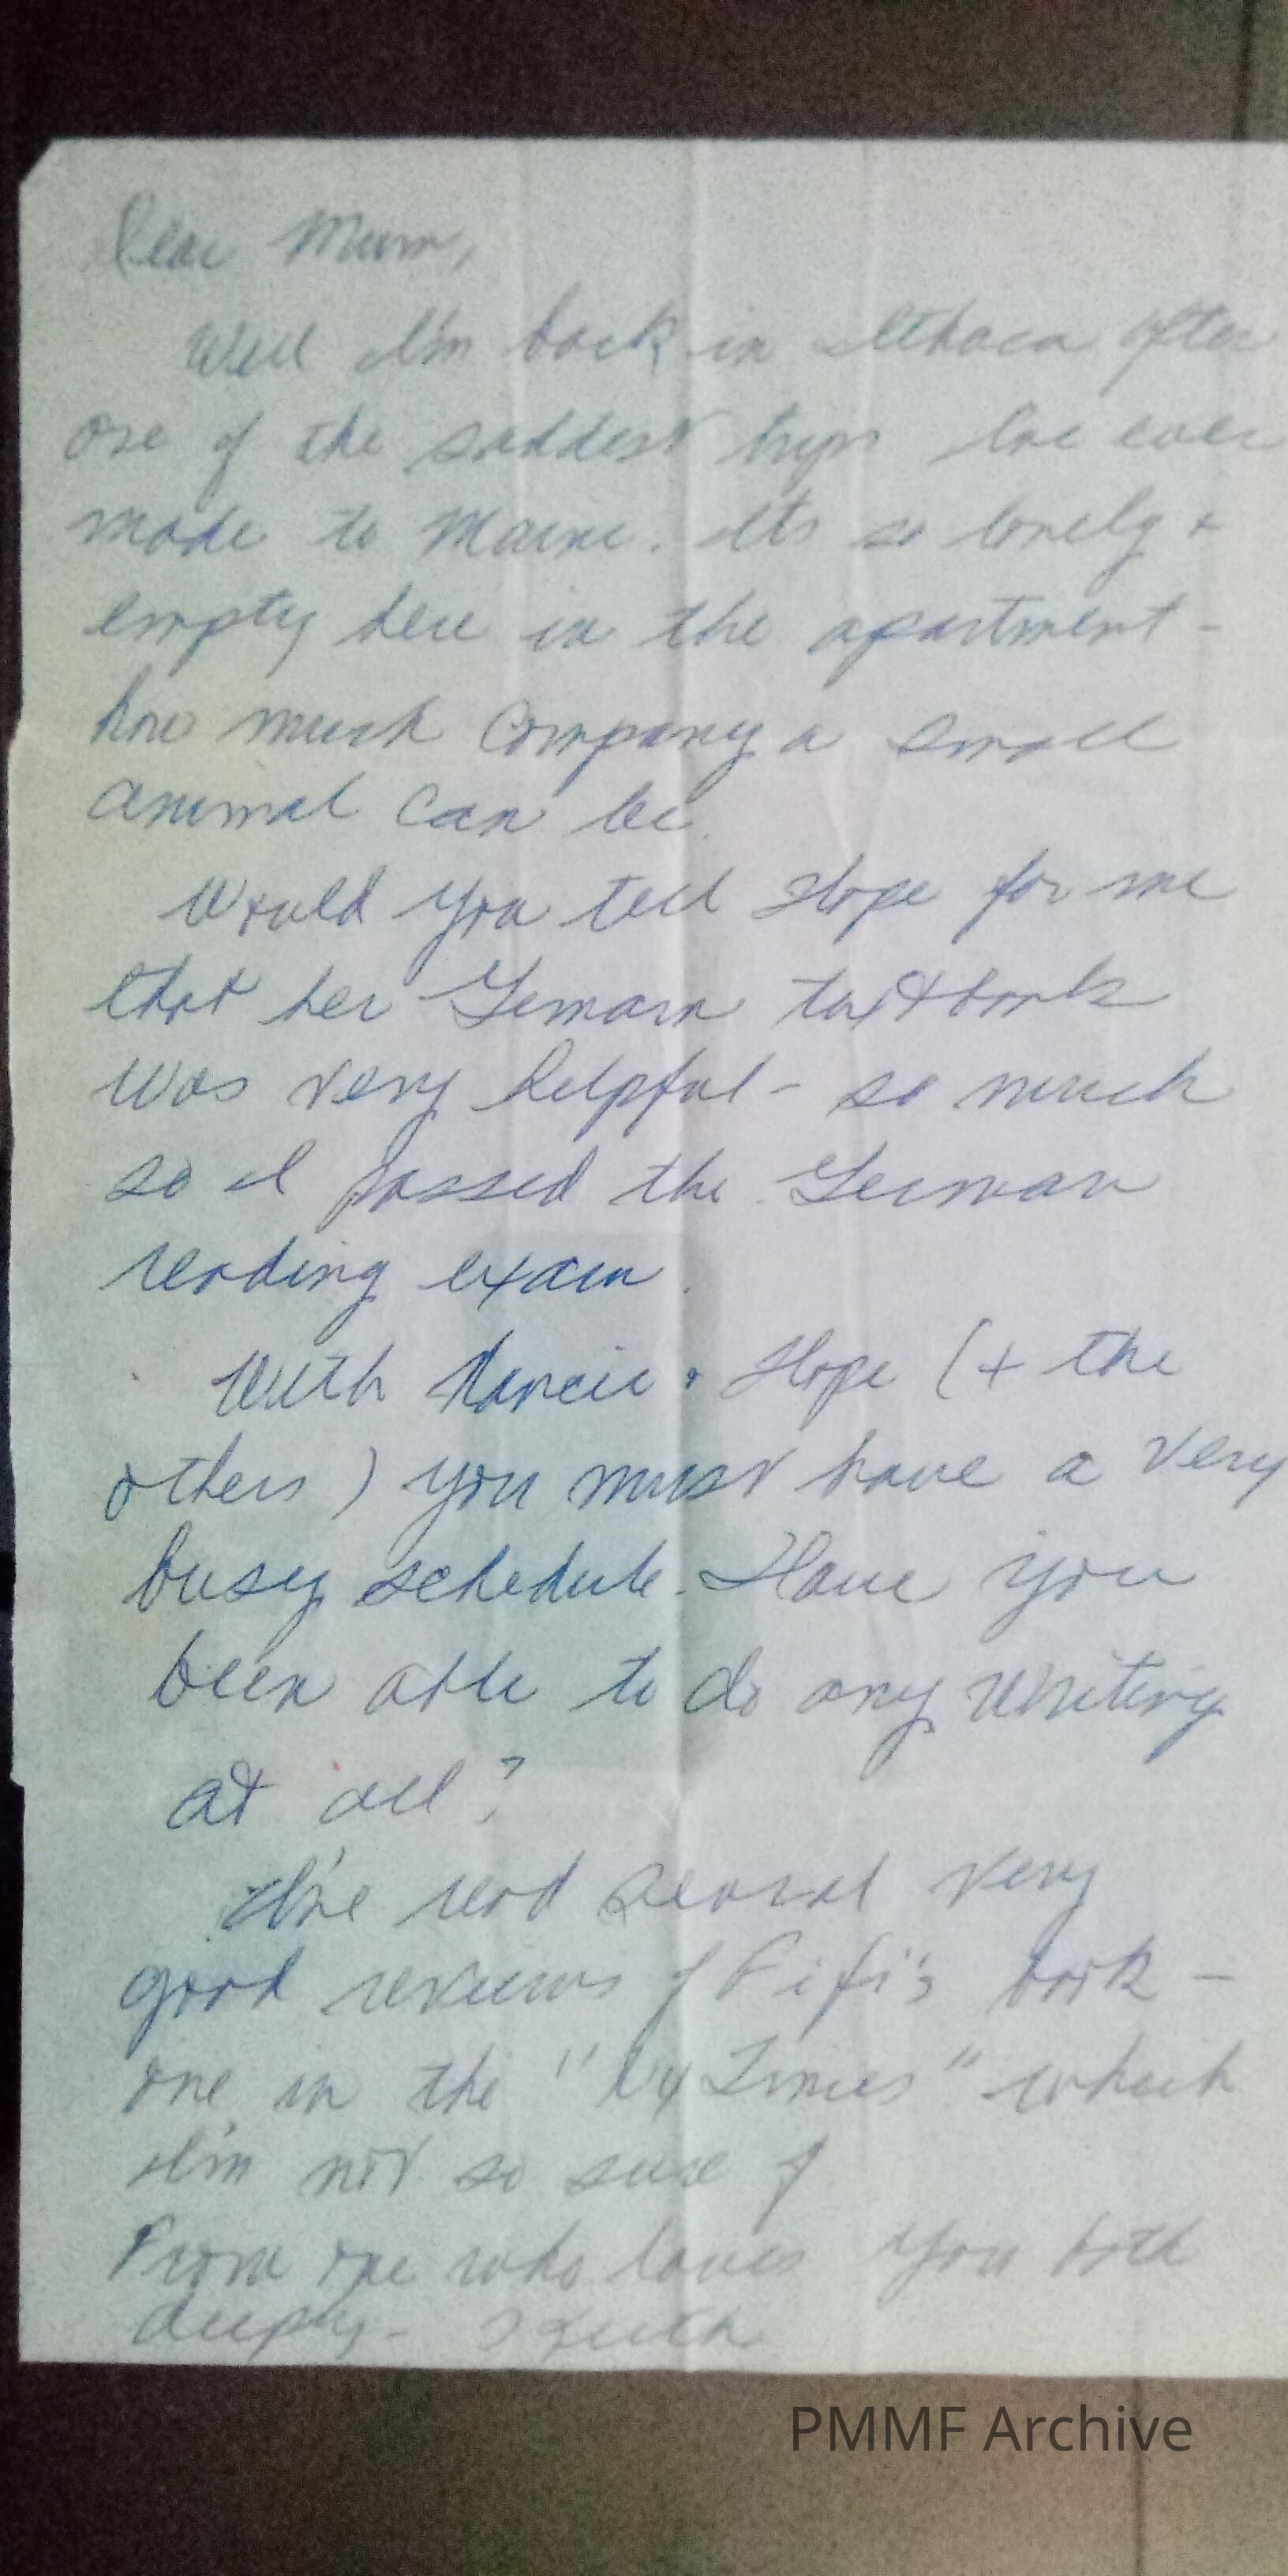 Dear Mum,
Well I'm back in Ithaca after
one of the saddest trips I've ever
made to Maine. It's so lonely +
empty here in the apartment -
how much company a small
animal can be.
Would you tell Hope for me
that her German textbook
was very helpful - so much
so I passed the German
reading exam.
With + Hope (+ the
others) you must have a very
busy schedule. Have you
been able to do any writing
at all?
I've read several very
good reviews of Fifi's book -
one in the "Ny Times" which
I'm not so sure of
From one who loves you both
deeply -
PMMF Archive